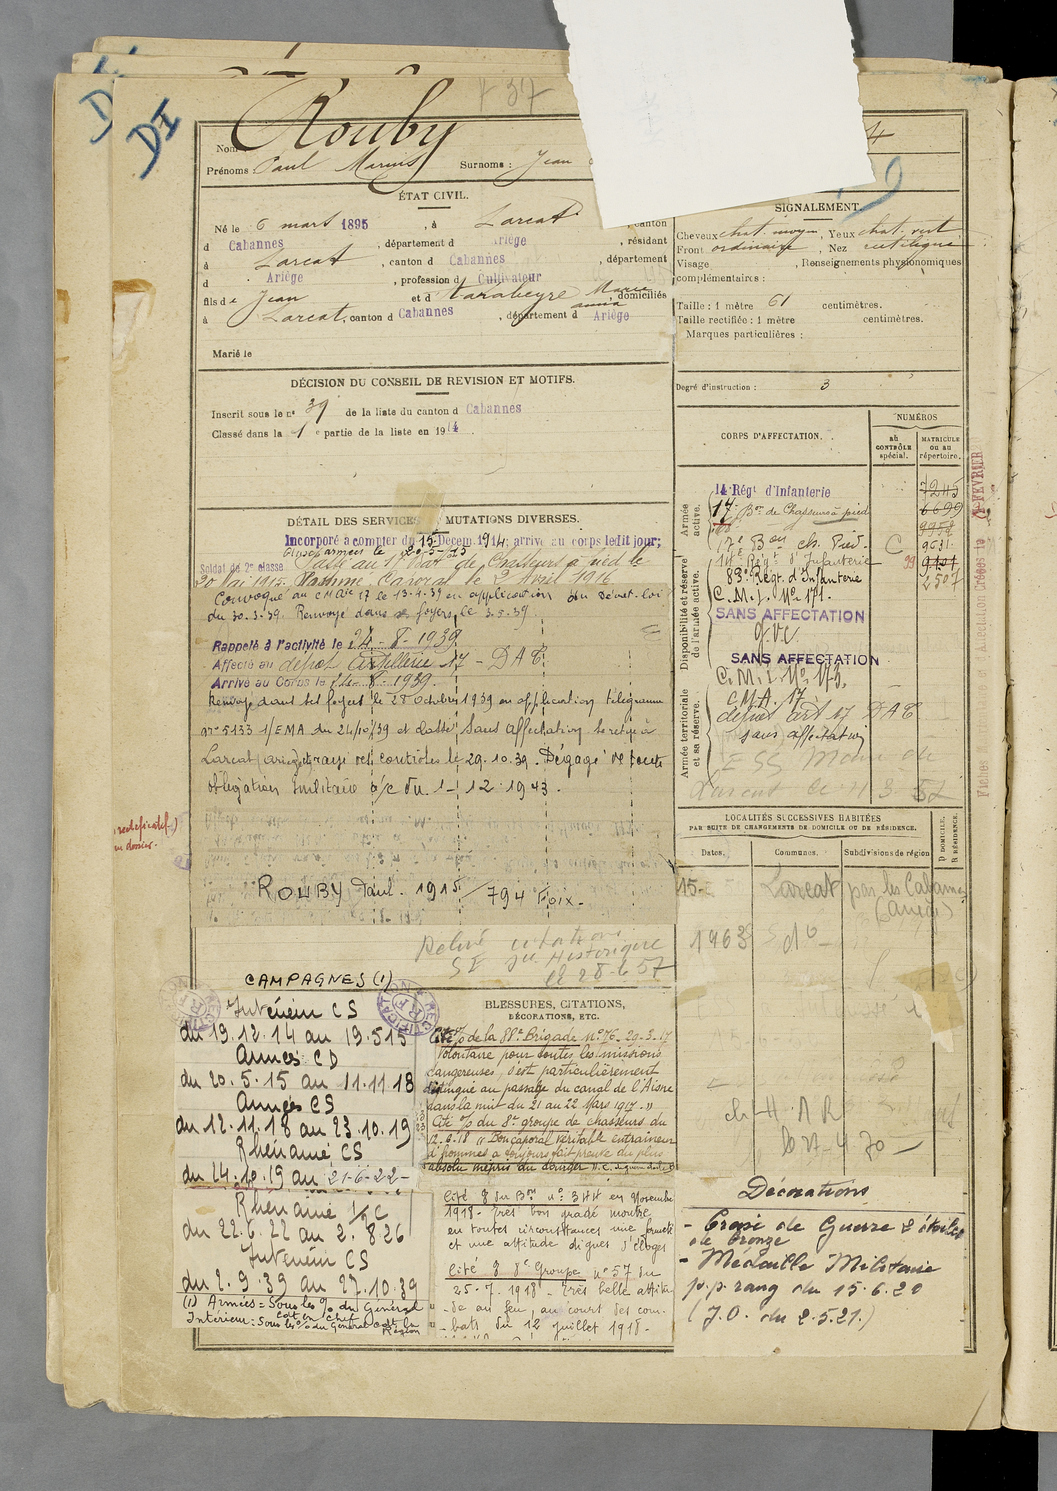 DI
DI
437
Nom : Rouby
Prénoms : Paul Marius Surnoms : Jean
ÉTAT CIVIL.
Né le 6 mars 1895, à Larcat, canton
d Cabannes, département d Ariège, résidant
à Larcat, canton d Cabannes, département
d Ariège, profession d Cultivateur
fils de Jean et d Marie
domiciliés
à Larcat, canton d Cabannes, département d Ariège
Marié le
DÉCISION DU CONSEIL DE REVISION ET MOTIFS.
Inscrit sous le nº 39 de la liste du canton d Cabannes
Classé dans la 1 e partie de la liste en 1914
DÉTAIL DES SERVICES MUTATIONS DIVERSES.
Incorporé à compter du 15 Décem. 1914; arrivé au corps ledit jour;
Soldat de 2e classe
Passé au Bat de Chasseurs à pied le
20 Mai 1915. Nommé Caporal le 2 Avril 1916
Convoqué au CM Aie 17 le 13.4.39 en application du Décret-Loi
du 30.3.39. Renvoyé dans ses foyers le 3.5.39
Rappelé à l'activité le 24-8-1939
Affecté au dépôt artillerie 17 - DAT
Arrivé au Corps le 24-8-1939.
Renvoyé dans ses foyers le 28 octobre 1939 en application télégramme
nº 5133 1/EMA du 24/10/39 et classé Sans affectation se retire à
Larcat (Ariège) et rayé des contrôles le 29.10.39. Dégagé de toute
obligation militaire à/c du 1-12-1943.
ROUBY Paul. 1915 / 794 Foix.
Relevé citations
SI du Historique
le 28-6-57
CAMPAGNES (1)
Intérieur CS
du 19.12.14 au 19.5.15
Armées CD
du 20.5.15 au 11.11.18
Armées CS
du 12.11.18 au 23.10.19
Rhénanie CS
du 24.10.19 au 21-6-22-
Rhénanie 1/2 C
du 22.6.22 au 2.8.26
Intérieur CS
du 2.9.39 au 27.10.39
(1) Armées = Sous les % du Général
Cdt en Chef
Intérieur: Sous les % du Général Cdt la
Région
BLESSURES, CITATIONS,
DÉCORATIONS, ETC.
Cité % de la 88e Brigade Nº 76. 29-3-17
Volontaire pour toutes les missions
dangereuses, s'est particulièrement
distingué au passage du canal de l'Aisne
dans la nuit du 21 au 22 Mars 1917. "
Cité % du 8e groupe de chasseurs du
2.6.18 " Bon caporal véritable entraîneur
d'hommes a toujours fait preuve du plus
absolu mépris du danger
Cité % du Bon nº 344 en Novembre
1918- Très bon gradé montre
en toutes circonstances une fermeté
et une attitude dignes d'éloges
Cité % 8e Groupe nº 57 du
25.7.1918 - Très belle attitu-
-de au feu, au court des com-
-bats du 12 juillet 1918-
SIGNALEMENT.
Cheveux chat. moyen, Yeux chat. vert
Front ordinaire, Nez rectiligne
Visage , Renseignements physionomiques
complémentaires :
Taille : 1 mètre 61 centimètres.
Taille rectifiée : 1 mètre centimètres.
Marques particulières :
Degré d'instruction : 3
CORPS D'AFFECTATION.
NUMÉROS
au CONTRÔLE spécial.
MATRICULE ou au répertoire.
Armée active.
14 Régt d'Infanterie 7245
17 Bon de Chasseurs à pied 6699
9952
17e Bon Ch. Pied. C 9631
Disponibilité et réserve de l'armée active.
14e Régt d'Infanterie
83e Régt. d'Infanterie 2507
C.M.I. Nº 171.
SANS AFFECTATION
G.V.C.
SANS AFFECTATION
C.M.I. Nº 173.
Armée territoriale et sa réserve.
C.M.A. 17
dépôt art 17 DAT
sans affectation
LOCALITÉS SUCCESSIVES HABITÉES
PAR SUITE DE CHANGEMENTS DE DOMICILE OU DE RÉSIDENCE.
Dates. Communes. Subdivisions de région D DOMICILE. R RÉSIDENCE.
15- Larcat par les Cabannes
(Ariège)
1963 dº
Décorations
- Croix de Guerre 2 étoiles
de bronze
- Médaille Militaire
p.p. rang du 15.6.20
(J.O. du 2.5.21.)